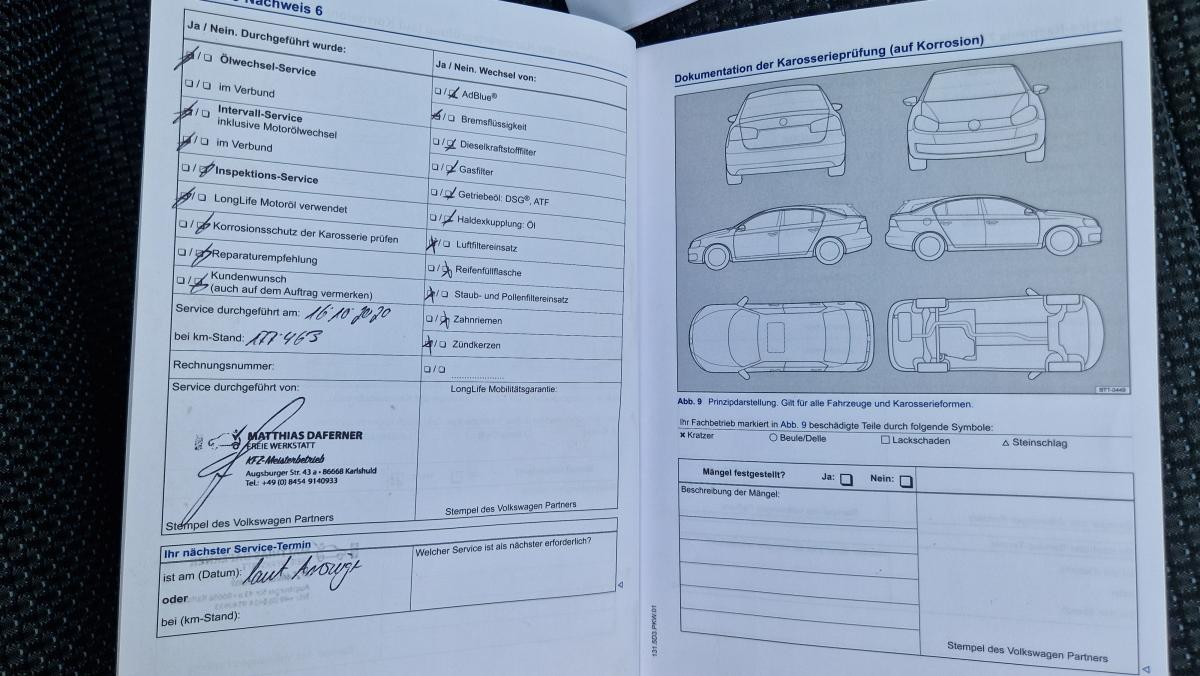 Nachweis 6
Ja / Nein. Durchgeführt wurde:
Ölwechsel-Service
im Verbund
Intervall-Service
inklusive Motorölwechsel
im Verbund
Inspektions-Service
LongLife Motoröl verwendet
Korrosionsschutz der Karosserie prüfen
Reparaturempfehlung
Kundenwunsch
(auch auf dem Auftrag vermerken)
Service durchgeführt am: 16.10.2020
bei km-Stand:
Rechnungsnummer:
Service durchgeführt von:
MATTHIAS DAFERNER
FREIE WERKSTATT
KFZ-Meisterbetrieb
Augsburger Str. 43 a • 86668 Karlshuld
Tel.: +49 (0) 8454 9140933
Stempel des Volkswagen Partners
Ja / Nein. Wechsel von:
AdBlue®
Bremsflüssigkeit
Dieselkraftstofffilter
Gasfilter
Getriebeöl: DSG®, ATF
Haldexkupplung: Öl
Luftfiltereinsatz
Reifenfüllflasche
Staub- und Pollenfiltereinsatz
Zahnriemen
Zündkerzen
LongLife Mobilitätsgarantie:
Stempel des Volkswagen Partners
Ihr nächster Service-Termin
ist am (Datum): laut Anzeige
oder
bei (km-Stand):
Welcher Service ist als nächster erforderlich?
Dokumentation der Karosserieprüfung (auf Korrosion)
BTT-0449
Abb. 9 Prinzipdarstellung. Gilt für alle Fahrzeuge und Karosserieformen.
Ihr Fachbetrieb markiert in Abb. 9 beschädigte Teile durch folgende Symbole:
× Kratzer ○ Beule/Delle □ Lackschaden △ Steinschlag
Mängel festgestellt? Ja: Nein:
Beschreibung der Mängel:
Stempel des Volkswagen Partners
131.5D3.PKW.01